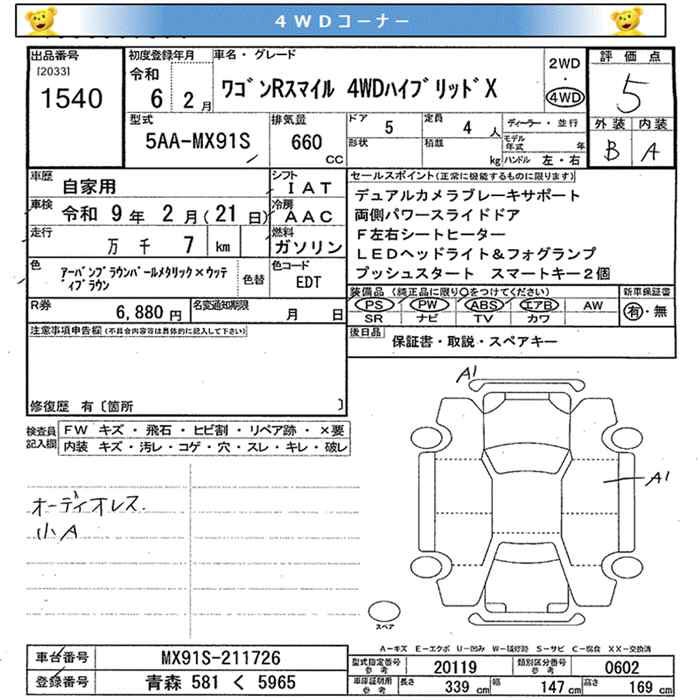 4WDコーナー
出品番号
[2033]
1540
初度登録年月
令和
6 2月
車名・グレード
ワゴンRスマイル 4WDハイブリッドX
2WD
・
4WD
評価点
5
型式
5AA-MX91S
排気量
660
CC
ドア
5
定員
4 人
ディーラー・並行
形状
積載
kg
モデル年式 年
ハンドル 左・右
外装 内装
B A
車歴
自家用
シフト
IAT
車検
令和 9年 2月(21日)
冷房
AAC
走行
万 千 7 km
燃料
ガソリン
色
アーバンブラウンパールメタリック×ウッディブラウン
色替
色コード
EDT
R券
6,880 円
名変通知期限
月 日
セールスポイント(正常に機能するものに限ります)
デュアルカメラブレーキサポート
両側パワースライドドア
F左右シートヒーター
LEDヘッドライト&フォグランプ
プッシュスタート スマートキー2個
装備品 (純正品に限り○をつけてください)
PS PW ABS エアB AW
SR ナビ TV カワ
新車保証書
有・無
後日品
保証書・取説・スペアキー
注意事項申告欄(不具合内容等は具体的に記入して下さい)
修復歴 有〔箇所 〕
検査員記入欄
FW キズ・飛石・ヒビ割・リペア跡・×要
内装 キズ・汚レ・コゲ・穴・スレ・キレ・破レ
オーディオレス.
小A
A1
A1
スペア
A-キズ E-エクボ U-凹み W-補修跡 S-サビ C-腐食 XX-交換済
車台番号
MX91S-211726
登録番号
青森 581 く 5965
型式指定番号
参考
20119
類別区分番号
参考
0602
車庫証明用
参考
長さ
339 cm
幅
147 cm
高さ
169 cm